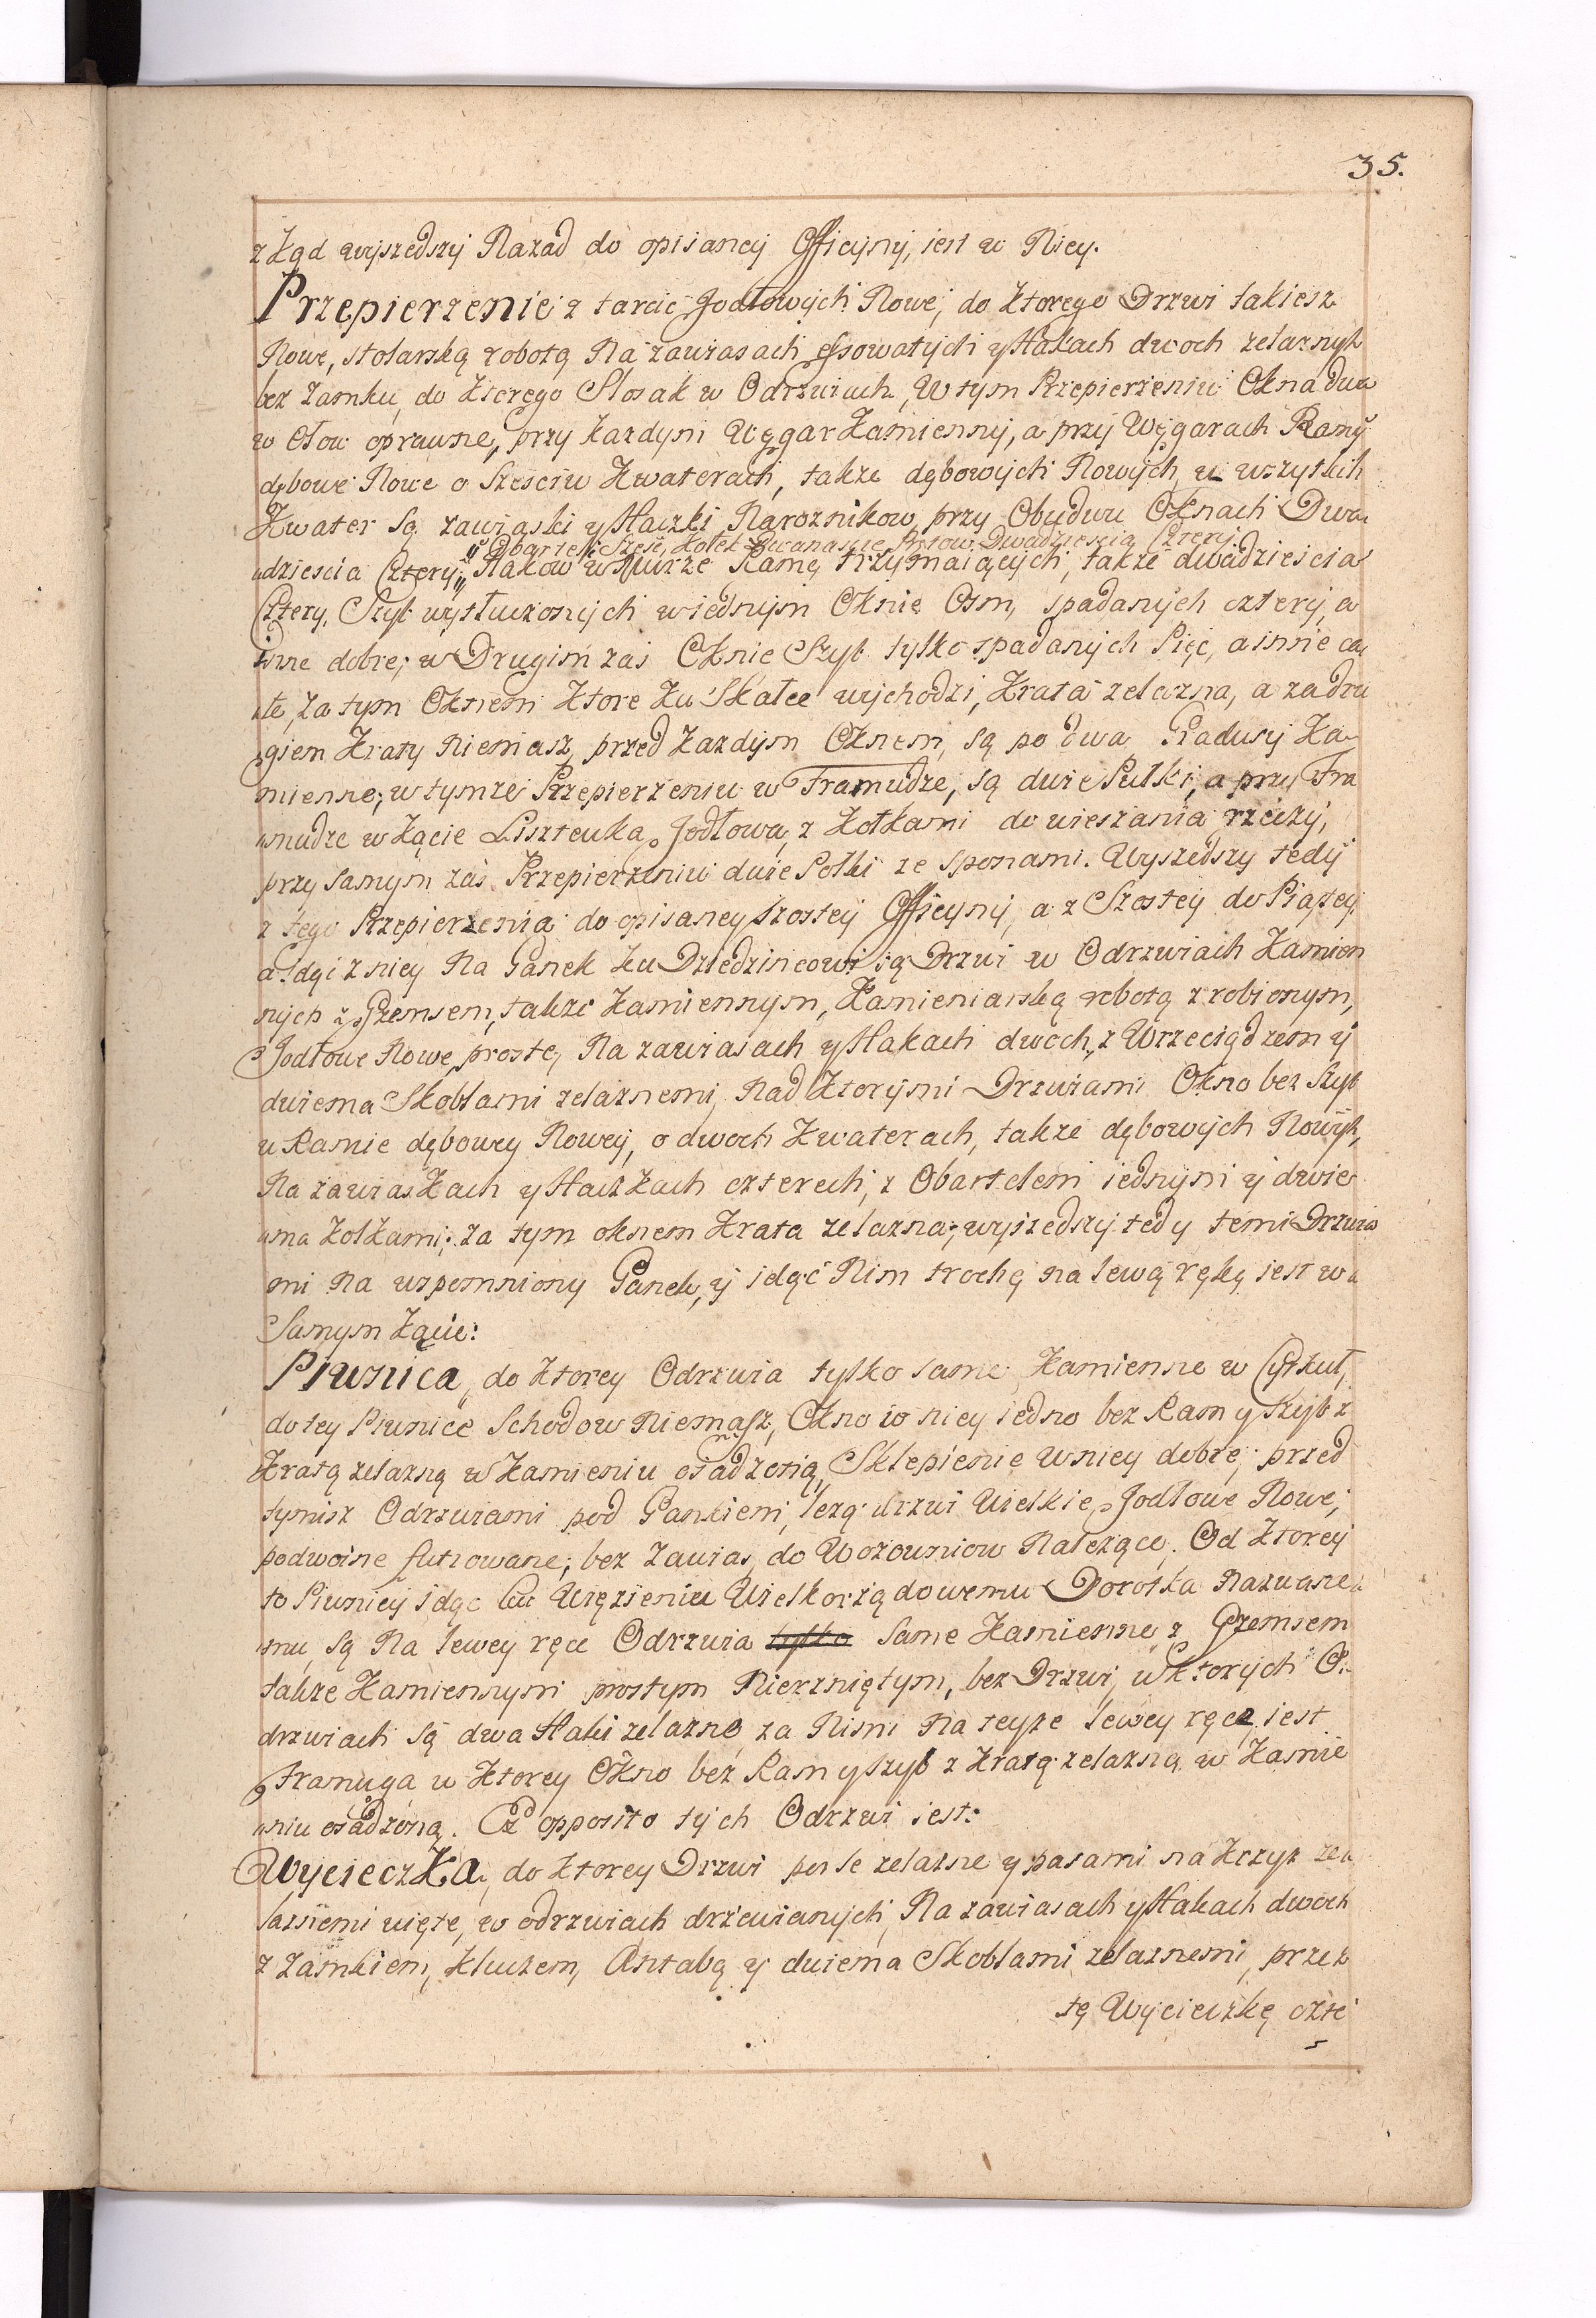 35.
z Kąd wyszedszy Nazad do opisaney Officyny, iest w Niey.
Przepierzenie z tarcic Jodłowych Nowe, do Ktorego Drzwi takiesz
Nowe, stolarską robotą Na zawiasach essowatych y Hakach dwoch zelaznych
bez Zamku, do Ktorego Skoak w Odrzwiach, W tym Przepierzeniu Okna dwa
w Ołow oprawne, przy Kazdym Węgar Kamienny, a przy Węgarach Ramy
dębowe Nowe o Sześciu Kwaterach, takze dębowych Nowych, u wszytkich
Kwater Są zawiaski y Haczki, Naroznikow przy Obudwu Oknach Dwa
Obartelı Sześć, Kołek Dwanascie, Prętow Dwadzieścia Cztery.
dziescia Cztery, Hakow w Murze Ramę trzymaiących, takze dwadzieścia
Cztery, Szyb wytłuczonych w iednym Oknie Osm, spadanych cztery, a
inne dobre; w Drugim zaś Oknie Szyb tylko spadanych Pięć, a inne ca
łe, Za tym Oknem Ktore Ku Skałce wychodzi, Krata zelazna, a za dru
giem Kraty Niemasz, przed Kazdym Oknem, są po dwa Gradusy Ka
mienne; w tymze Przepierzeniu w Framudze, są dwie Pułki, a przy Fra
mudze w Kącie Lisztewka Jodłowa, z Kołkami do wieszania rzeczy,
przy Samym zaś Przepierzeniu dwie Połki ze sponami. Wyszedszy tedy
z tego Przepierzenia do opisaney szostey Officyny, a z Szostey do Piątey,
a idąc z niey Na Ganek Ku Dziedzincowi są Drzwi w Odrzwiach Kamien
nych z Gzemsem, takze Kamiennym, Kamieniarską robotą zrobionym,
Jodłowe Nowe, proste, Na zawiasach y Hakach dwoch, z Wrzeciądzem y
dwiema Skoblami zelaznemi, Nad Ktorymi Drzwiami Okno bez Szyb
w Ramie dębowey Nowey, o dwoch Kwaterach, takze dębowych Nowych,
Na zawiasKach y HaczKach czterech, z Obartelem iednym y dwie
ma KołKami; Za tym oknem Krata zelazna; wyszedszy tedy temi Drzwia
mi Na wspomniony Ganek, y idąc Nim trochę na lewą rękę iest w
Samym Kącie:
Piwnica, do Ktorey Odrzwia tylko same Kamienne w Cyrkuł,
do tey Piwnice Schodow Niemasz, Okno w niey iedno bez Ram y Szyb z
Kratą zelazną w Kamieniu osadzoną, Sklepienie w niey dobre; przed
tymisz Odrzwiami pod Gankiem, lezą drzwi Wielkie, Jodłowe Nowe,
podwoine futrowane, bez Zawias, do Wozowniow Nalezące. Od Ktorey
to Piwnicy idąc ku Więzieniu Wielkorządowemu Dorotka Nazwane
mu, są Na lewey ręce Odrzwia tylko Same Kamienne z Gzemsem
takze Kamiennym prostym Nierzniętym, bez Drzwi, w Ktorych O
drzwiach Są dwa Haki zelazne, za Nimi Na teyze lewey ręce iest
Framuga w Ktorey Okno bez Ram y szyb z Kratą zelazną w Kamie
niu osadzoną. Ex opposito tych Odrzwi iest:
WycieczKa, do Ktorey Drzwi pełe zelazne y pasami na Krzyz zela
laznemi uięte, w odrzwiach drzewianych, Na zawiasach y Hakach dwoch
z Zamkiem, Kluczem, Antabą y dwiema Skoblami zelaznemi, przez
tę Wycieczkę czte